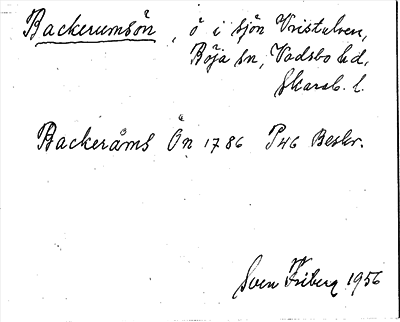 Backerumsön, ö i sjön Vristulven,
Böja sn, Vadsbo hd,
Skarab. l.
Backeråms Ön 1786 P46 Beskr.
Sven Friberg 1956